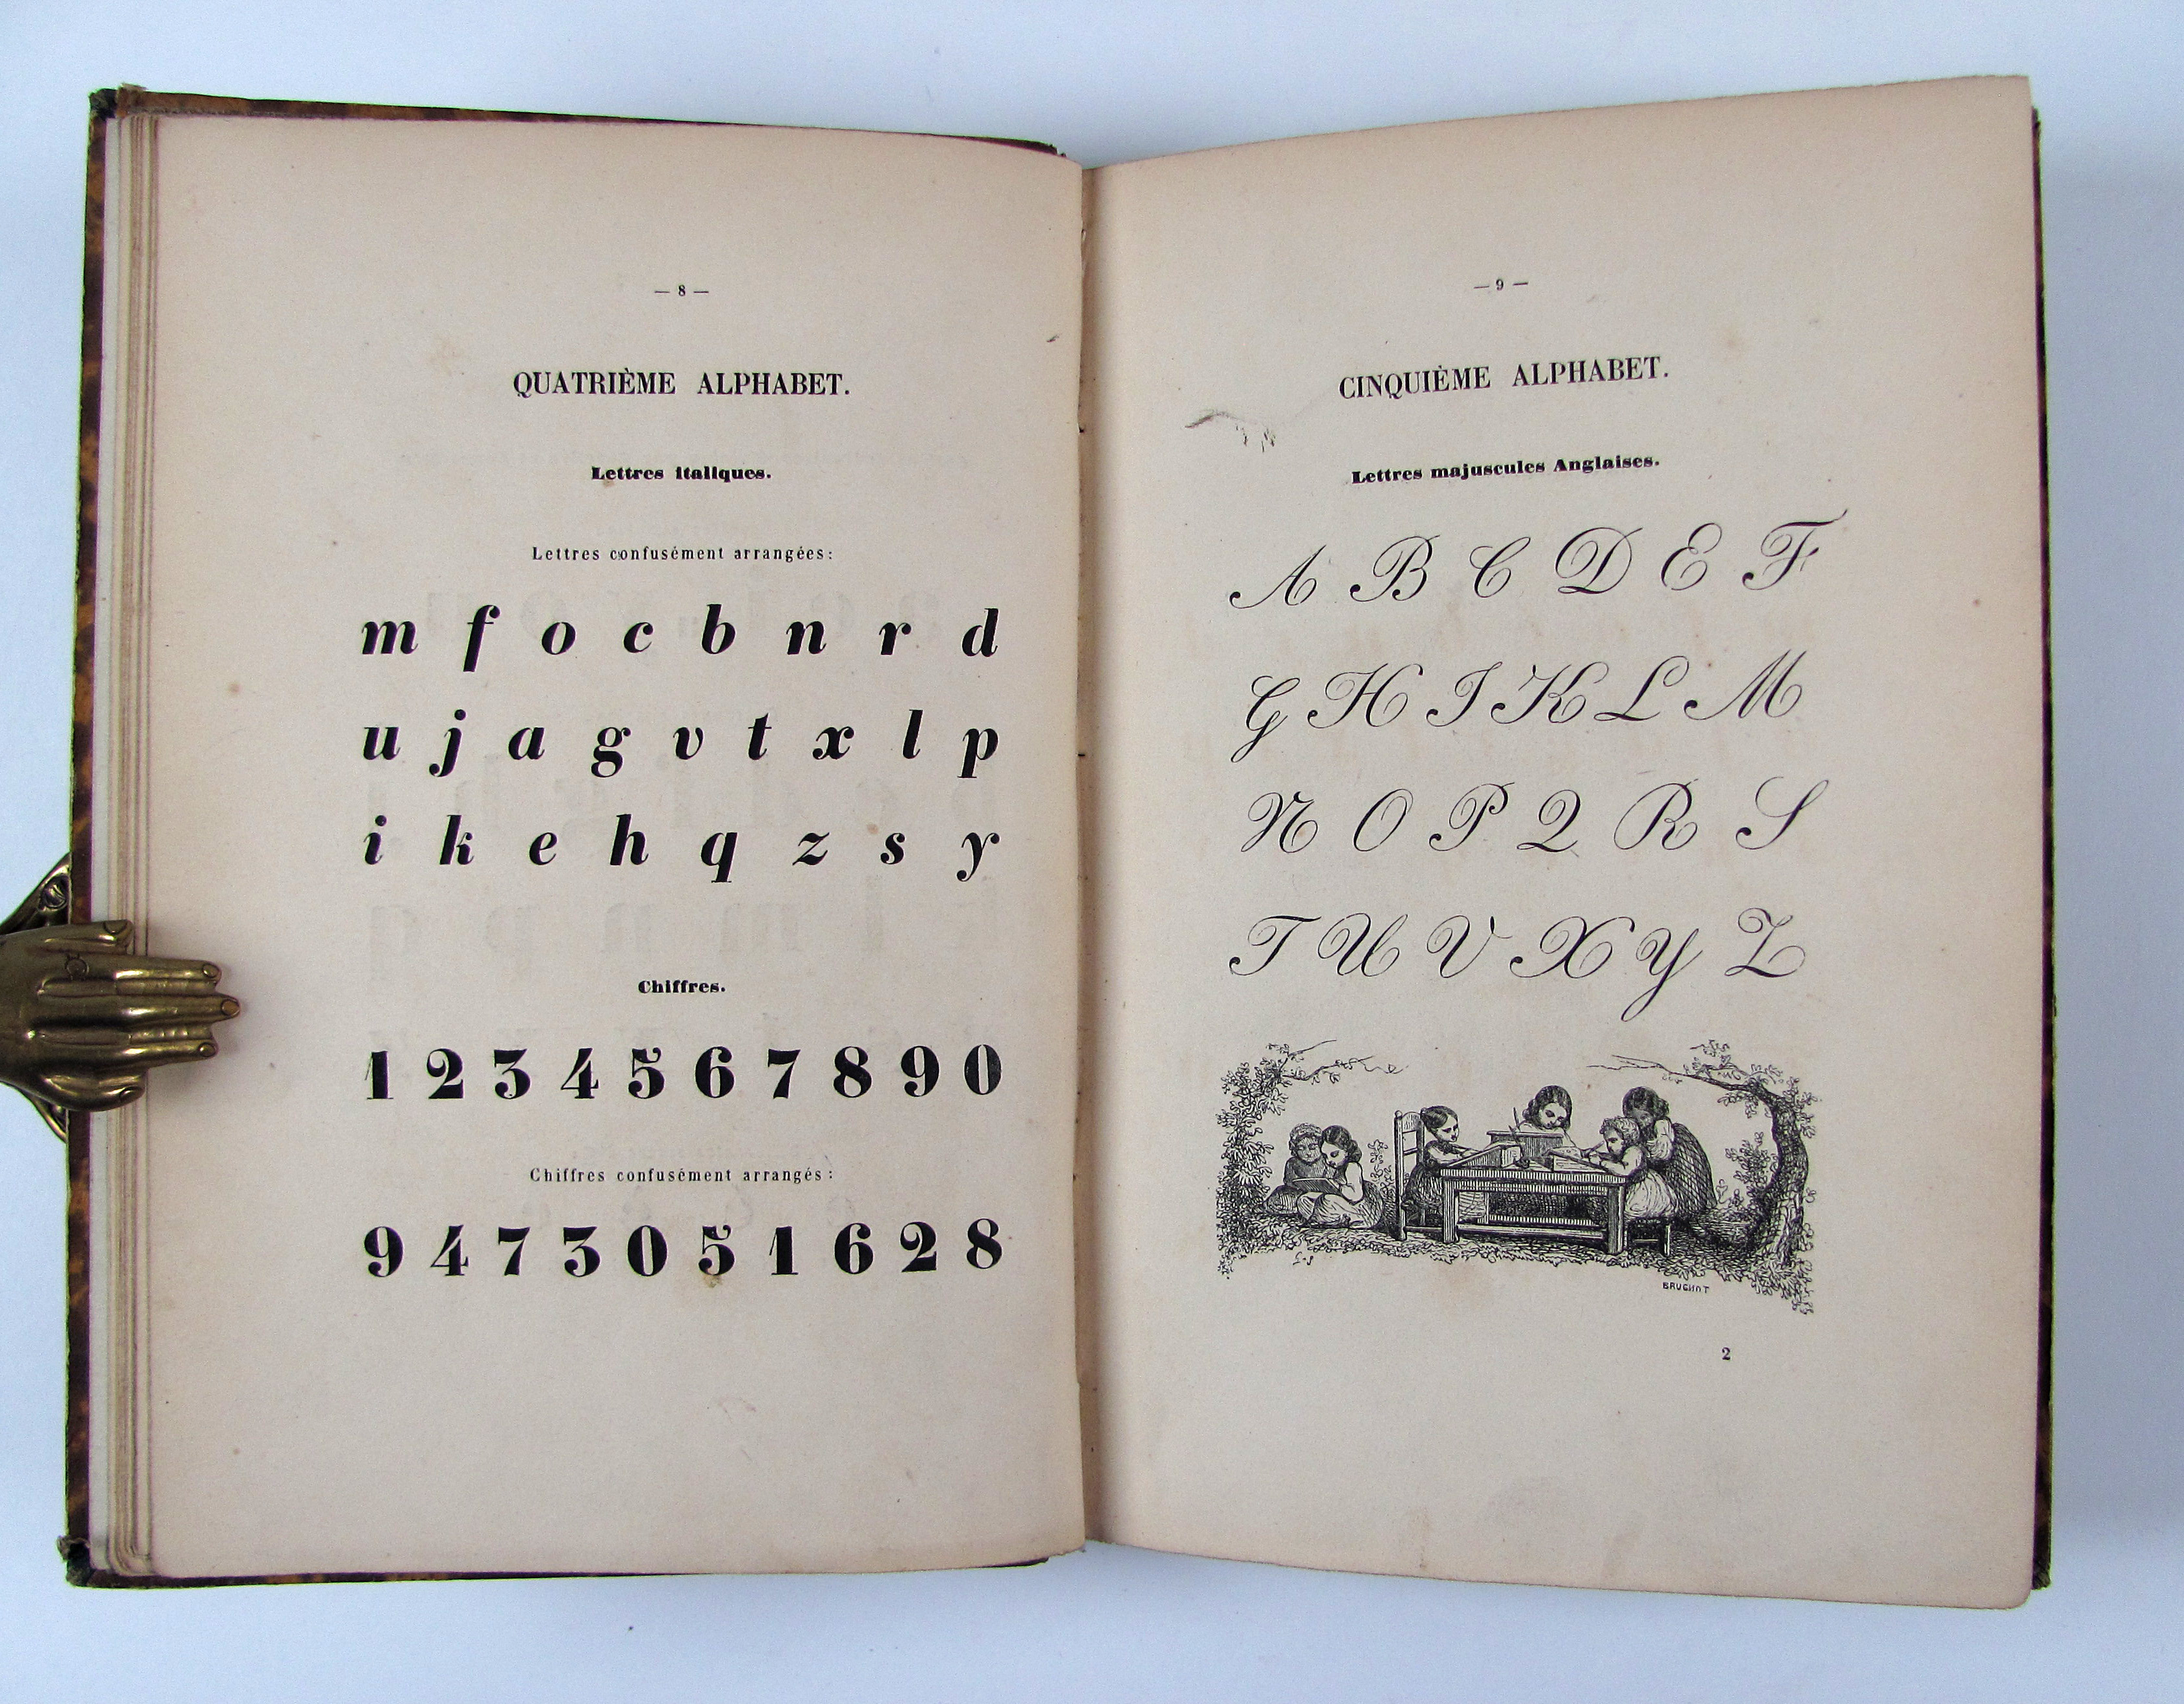 — 8 —
QUATRIÈME ALPHABET.
Lettres italiques.
Lettres confusément arrangées:
m f o c b n r d
u j a g v t x l p
i k e h q z s y
Chiffres.
1 2 3 4 5 6 7 8 9 0
Chiffres confusément arrangés:
9 4 7 3 0 5 1 6 2 8
— 9 —
CINQUIÈME ALPHABET.
Lettres majuscules Anglaises.
A B C D E F
G H I K L M
N O P Q R S
T U V X Y Z
BRUGNOT
2